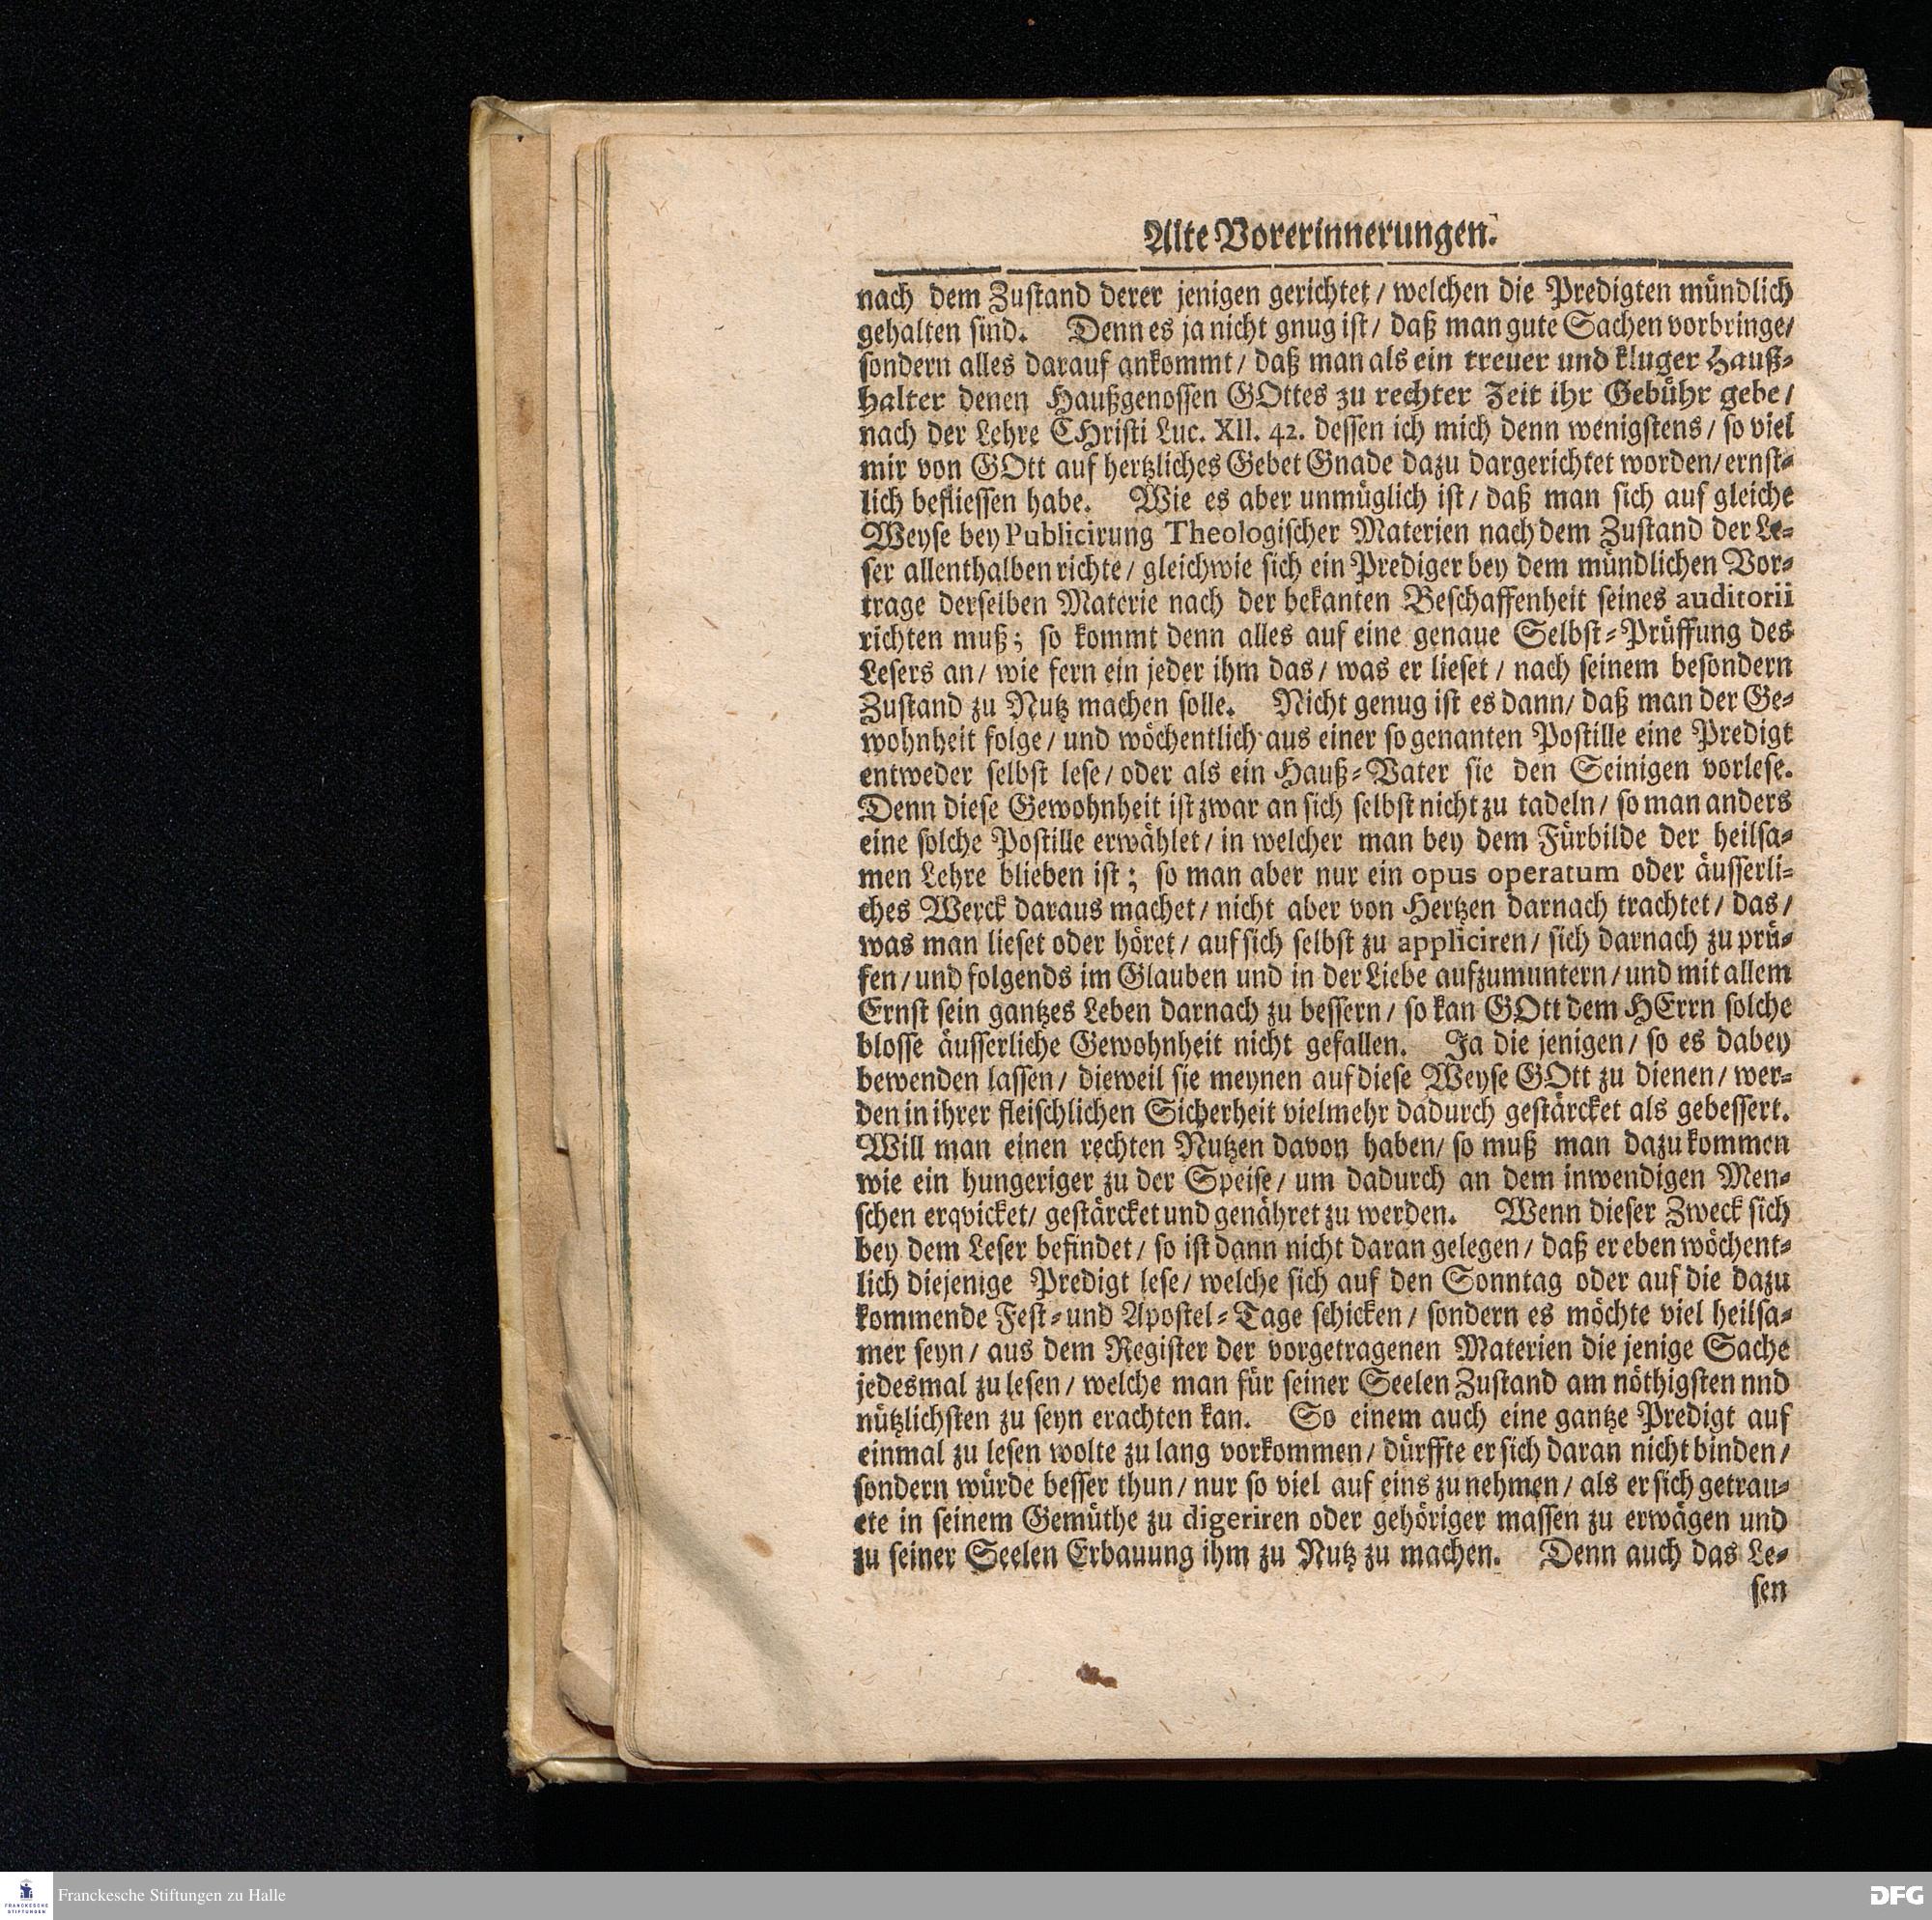 Alte Vorerinnerungen.
nach dem Zustand derer jenigen gerichtet / welchen die Predigten mündlich
gehalten sind. Denn es ja nicht gnug ist / daß man gute Sachen vorbringe /
sondern alles darauf ankommt / daß man als ein treuer und kluger Hauß-
halter denen Haußgenossen GOttes zu rechter Zeit ihr Gebühr gebe /
nach der Lehre CHristi Luc. XII. 42. dessen ich mich denn wenigstens / so viel
mir von GOtt auf hertzliches Gebet Gnade dazu dargerichtet worden / ernst-
lich befliessen habe. Wie es aber unmüglich ist / daß man sich auf gleiche
Weyse bey Publicirung Theologischer Materien nach dem Zustand der Le-
ser allenthalben richte / gleichwie sich ein Prediger bey dem mündlichen Vor-
trage derselben Materie nach der bekanten Beschaffenheit seines auditorii
richten muß; so kommt denn alles auf eine genaue Selbst-Prüffung des
Lesers an / wie fern ein jeder ihm das / was er lieset / nach seinem besondern
Zustand zu Nutz machen solle. Nicht genug ist es dann / daß man der Ge-
wohnheit folge / und wöchentlich aus einer so genanten Postille eine Predigt
entweder selbst lese / oder als ein Hauß-Vater sie den Seinigen vorlese.
Denn diese Gewohnheit ist zwar an sich selbst nicht zu tadeln / so man anders
eine solche Postille erwählet / in welcher man bey dem Fürbilde der heilsa-
men Lehre blieben ist; so man aber nur ein opus operatum oder äusserli-
ches Werck daraus machet / nicht aber von Hertzen darnach trachtet / das /
was man lieset oder höret / auf sich selbst zu appliciren / sich darnach zu prü-
fen / und folgends im Glauben und in der Liebe aufzumuntern / und mit allem
Ernst sein gantzes Leben darnach zu bessern / so kan GOtt dem HErrn solche
blosse äusserliche Gewohnheit nicht gefallen. Ja die jenigen / so es dabey
bewenden lassen / dieweil sie meynen auf diese Weyse GOtt zu dienen / wer-
den in ihrer fleischlichen Sicherheit vielmehr dadurch gestärcket als gebessert.
Will man einen rechten Nutzen davon haben / so muß man dazu kommen
wie ein hungeriger zu der Speise / um dadurch an dem inwendigen Men-
schen erqvicket / gestärcket und genähret zu werden. Wenn dieser Zweck sich
bey dem Leser befindet / so ist dann nicht daran gelegen / daß er eben wöchent-
lich diejenige Predigt lese / welche sich auf den Sonntag oder auf die dazu
kommende Fest- und Apostel-Tage schicken / sondern es möchte viel heilsa-
mer seyn / aus dem Register der vorgetragenen Materien die jenige Sache
jedesmal zu lesen / welche man für seiner Seelen Zustand am nöthigsten nnd
nützlichsten zu seyn erachten kan. So einem auch eine gantze Predigt auf
einmal zu lesen wolte zu lang vorkommen / dürffte er sich daran nicht binden /
sondern würde besser thun / nur so viel auf eins zu nehmen / als er sich getrau-
ete in seinem Gemüthe zu digeriren oder gehöriger massen zu erwägen und
zu seiner Seelen Erbauung ihm zu Nutz zu machen. Denn auch das Le-
sen
FRANCKESCHE
STIFTUNGEN
Franckesche Stiftungen zu Halle
DFG